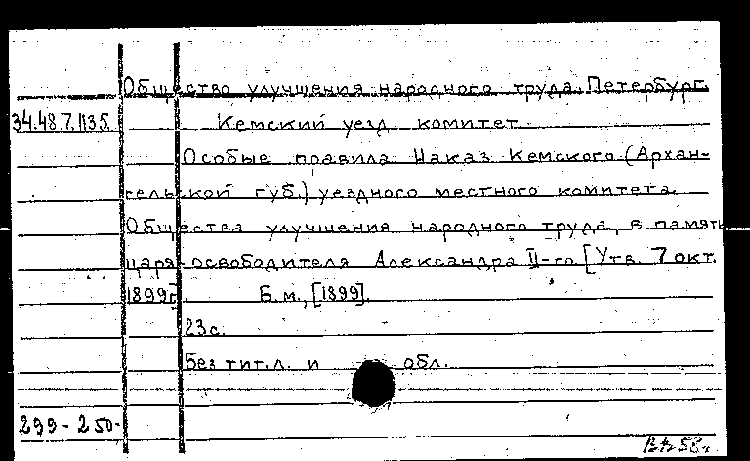 Общество улучшения народного труда. Петербург.
34.48.7.1135. Кемский уезд. комитет
Особые правила Наказ Кемского (Архан-
гельской губ.) уездного местного комитета
Общества улучшения народного труда, в память
царя-освободителя Александра II-го [Утв. 7 окт.
1899г]. Б.м., [1899].
23 с.
Без тит.л. и обл.
299-250-